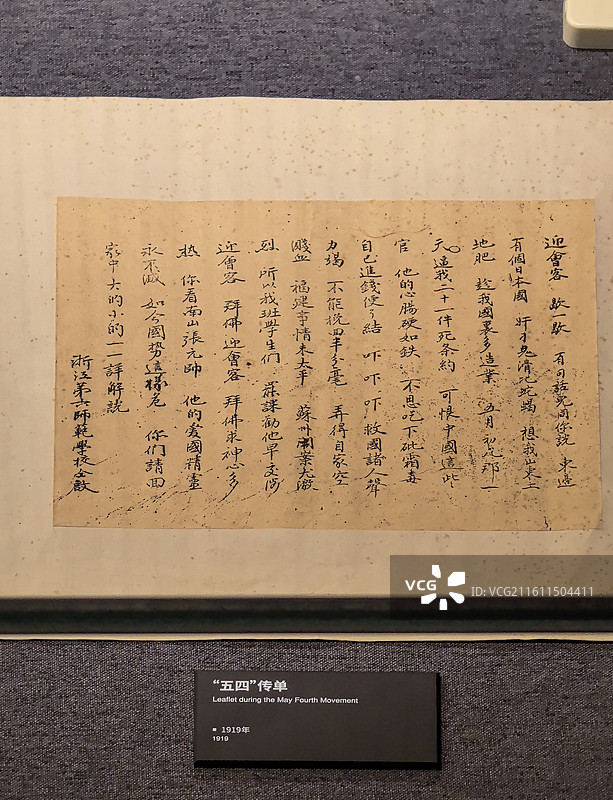 迎會客 歇一歇 有句話兒同你説 東邊
有個日本國 奸才兒滑比蛇蝎 想我山東土
地肥 趁我國裏多造業 五月初七那一
天 逼我二十一件死条約 可恨中國這些
官 他的心腸硬如鉄 不思吃下砒霜毒
自己進錢便了結 吓吓吓救國諸人聲
力竭 不能挽回半分毫 弄得自家空
濺血 福建事情未太平 蘇州閙案尤激
烈 所以我班學生們 莊諜勸他早交涉
迎會客 拜佛迎會客 拜佛求神心多
热 你看南山張元帥 他的爱國精靈
永不滅 如今國勢這樣危 你們請回
家中大的小的一一詳解説
浙江第六師範學校文啟
VCG
ID:VCG211611504411
“五四”传单
Leaflet during the May Fourth Movement
1919年
1919